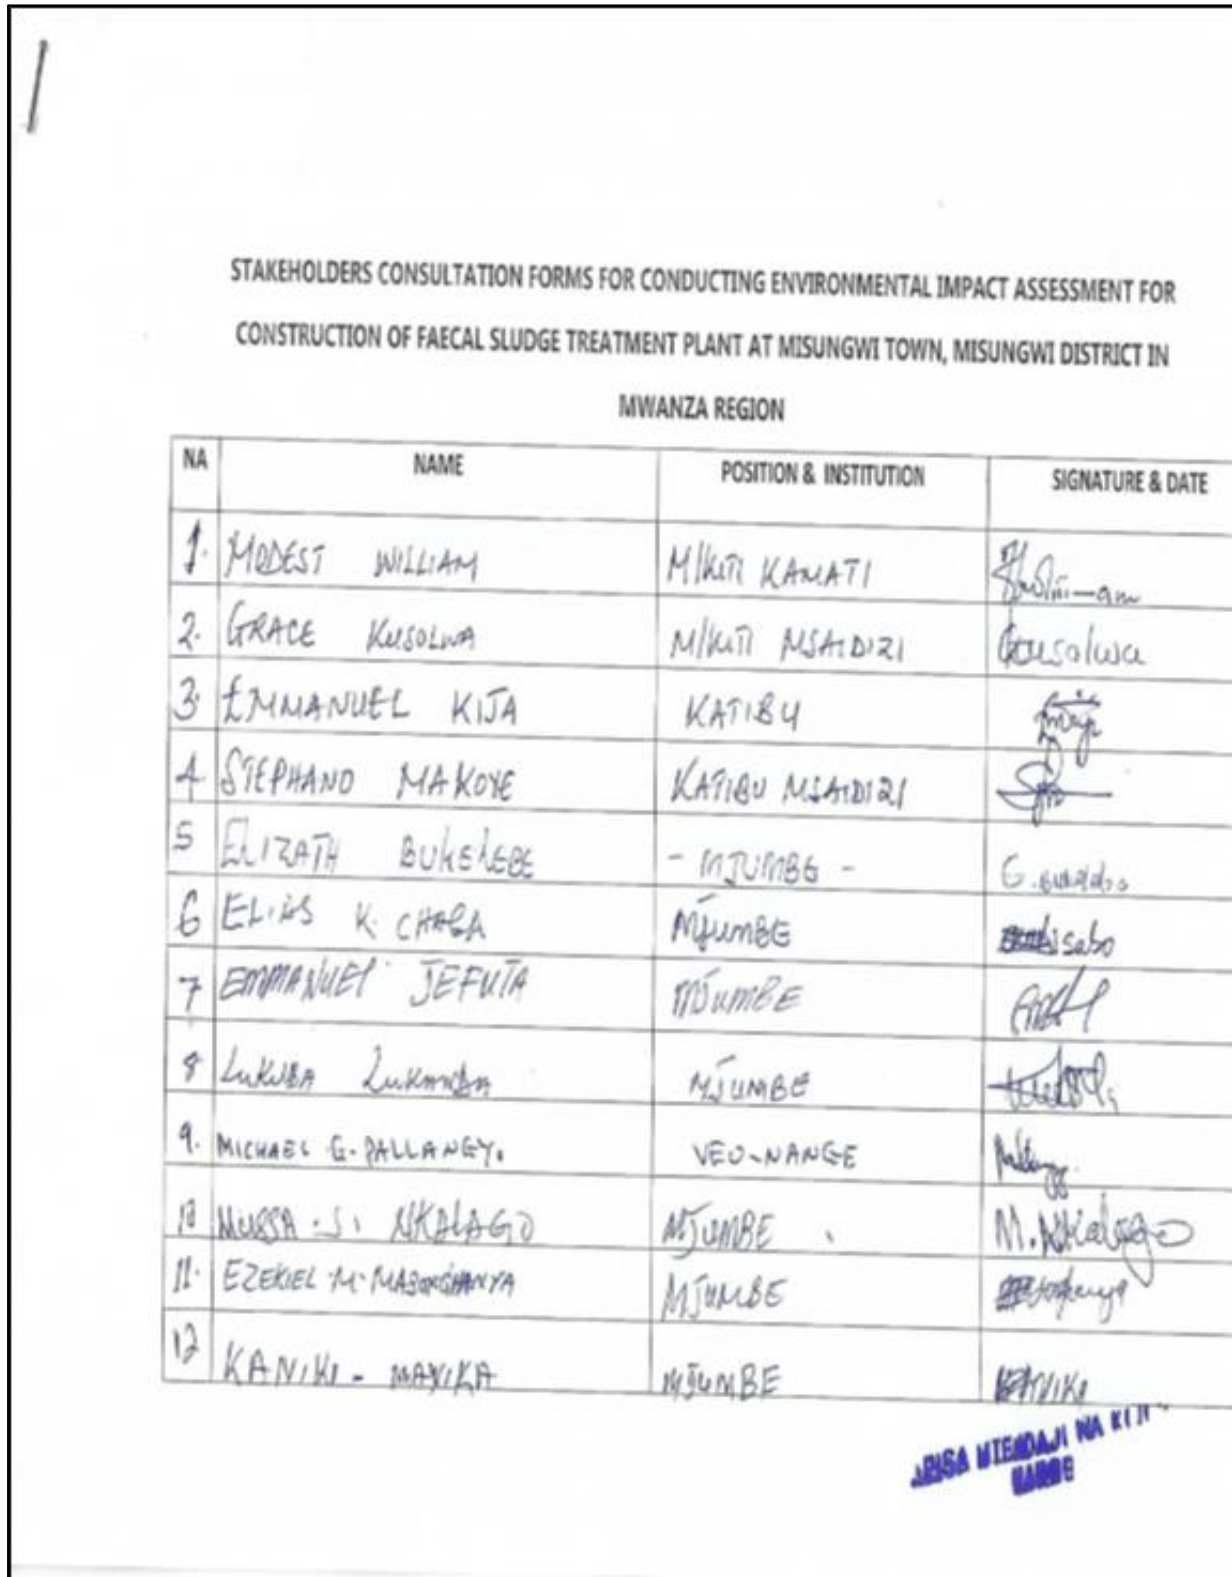 STAKEHOLDERS CONSULTATION FORMS FOR CONDUCTING ENVIRONMENTAL IMPACT ASSESSMENT FOR
CONSTRUCTION OF FAECAL SLUDGE TREATMENT PLANT AT MISUNGWI TOWN, MISUNGWI DISTRICT IN
MWANZA REGION
NA NAME POSITION & INSTITUTION SIGNATURE & DATE
1. MODEST WILLIAM M/KITI KAMATI
2. GRACE KUSOLWA M/KITI MSAIDIZI Kusolwa
3. EMMANUEL KIJA KATIBU
4 STEPHANO MAKOYE KATIBU MSAIDIZI
5 ELIZATH BUKELEBE - MJUMBE -
6 ELIAS K. CHABA MJUMBE
7 EMMANUEL JEFUTA MJUMBE
8 LUKUBA MJUMBE
9. MICHAEL G. PALLANGY. VEO-NANGE
10 MUSSA . S. NKALAGO MJUMBE M. Nkalago
11. EZEKIEL M. MJUMBE
12 KANIKI - MAYIKA MJUMBE
MTENDAJI NA KIJI